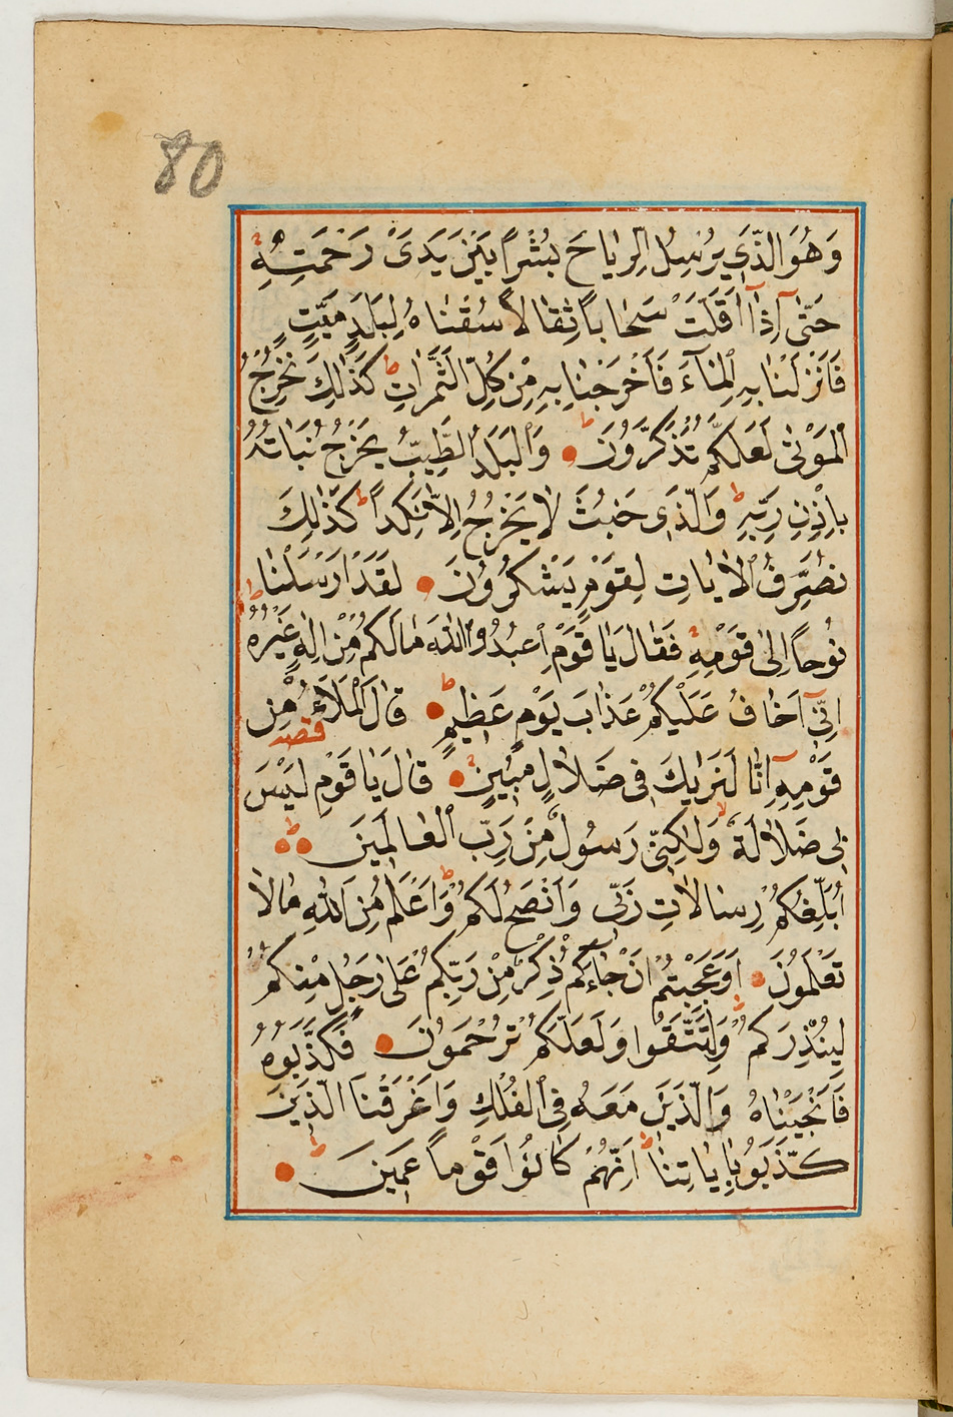 80
وَهُوَ الَّذِي يُرْسِلُ الرِّيَاحَ بُشْرًا بَيْنَ يَدَيْ رَحْمَتِهِ
حَتَّى اِذَا اَقَلَّتْ سَحَابًا ثِقَالًا سُقْنَاهُ لِبَلَدٍ مَيِّتٍ
فَاَنْزَلْنَا بِهِ الْمَاءَ فَاَخْرَجْنَا بِهِ مِنْ كُلِّ الثَّمَرَاتِ ط كَذَلِكَ نُخْرِجُ
الْمَوْتَى لَعَلَّكُمْ تَذَكَّرُونَ وَالْبَلَدُ الطَّيِّبُ يَخْرُجُ نَبَاتُهُ
بِاِذْنِ رَبِّهِ ط وَالَّذِي خَبُثَ لَا يَخْرُجُ اِلَّا نَكِدًا ط كَذَلِكَ
نُصَرِّفُ الْاٰيَاتِ لِقَوْمٍ يَشْكُرُونَ لَقَدْ اَرْسَلْنَا
نُوحًا اِلَى قَوْمِهِ فَقَالَ يَا قَوْمِ اعْبُدُوا اللّٰهَ مَا لَكُمْ مِنْ اِلٰهٍ غَيْرُهُ ط
اِنِّي اَخَافُ عَلَيْكُمْ عَذَابَ يَوْمٍ عَظِيمٍ ط قَالَ الْمَلَاُ مِنْ
قَوْمِهِ اِنَّا لَنَرٰيكَ فِي ضَلَالٍ مُبِينٍ قَالَ يَا قَوْمِ لَيْسَ
بِي ضَلَالَةٌ وَلٰكِنِّي رَسُولٌ مِنْ رَبِّ الْعَالَمِينَ
اُبَلِّغُكُمْ رِسَالَاتِ رَبِّي وَاَنْصَحُ لَكُمْ وَاَعْلَمُ مِنَ اللّٰهِ مَا لَا
تَعْلَمُونَ اَوَعَجِبْتُمْ اَنْ جَاءَكُمْ ذِكْرٌ مِنْ رَبِّكُمْ عَلَى رَجُلٍ مِنْكُمْ
لِيُنْذِرَكُمْ وَلِتَتَّقُوا وَلَعَلَّكُمْ تُرْحَمُونَ فَكَذَّبُوهُ
فَاَنْجَيْنَاهُ وَالَّذِينَ مَعَهُ فِي الْفُلْكِ وَاَغْرَقْنَا الَّذِينَ
كَذَّبُوا بِاٰيَاتِنَا ط اِنَّهُمْ كَانُوا قَوْمًا عَمِينَ